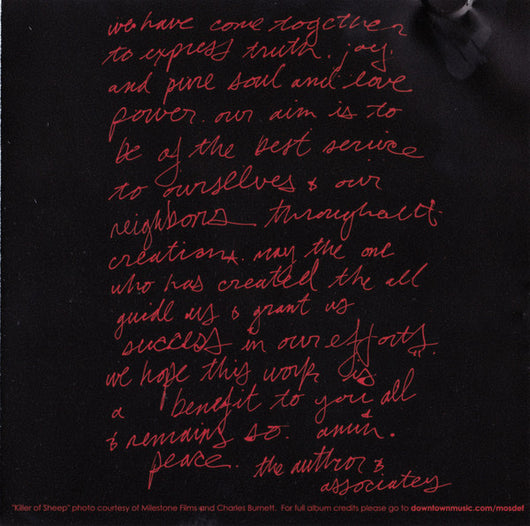 we have come together
to express truth. joy.
and pure soul and love
power. our aim is to
be of the best service
to ourselves & our
neighbors throughout
creation. may the one
who has created the all
guide us & grant us
success in our efforts.
we hope this work is
a benefit to you all
& remains so. amin.
peace. the author &
associates
"Killer of Sheep" photo courtesy of Milestone Films and Charles Burnett. For full album credits please go to downtownmusic.com/mosdef